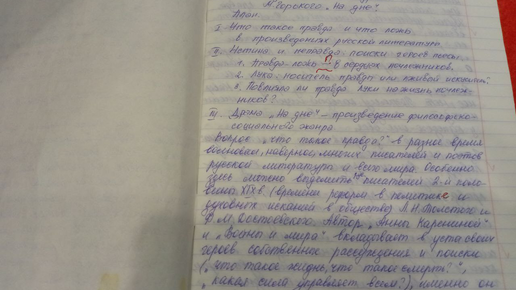 М. Горького „На дне"
План.
I. Что такое правда и что ложь
в произведениях русской литературы
II. Истина и неправда - поиски героев пьесы.
1. Правда-ложь в сердцах ночлежников.
2. Лука: носитель правды или лживой иллюзии?
3. Повлияла ли правда Луки на жизнь ночлеж-
ников?
III. Драма „На дне" - произведение философско-
социального жанра.
Вопрос „что такое правда?" в разное время
волновал, наверное, многих писателей и поэтов
русской литературы и всего мира. Особенно
здесь можно выделить писателей 2-й поло-
вины XIX в (времени реформ в политике и
духовных исканий в обществе) Л.Н. Толстого и
Ф.М. Достоевского. Автор „Анны Карениной"
и „Войны и мира" вкладывает в уста своих
героев собственные рассуждения и поиски
(„что такое жизнь, что такое смерть?",
„какая сила управляет всем?"), именно он